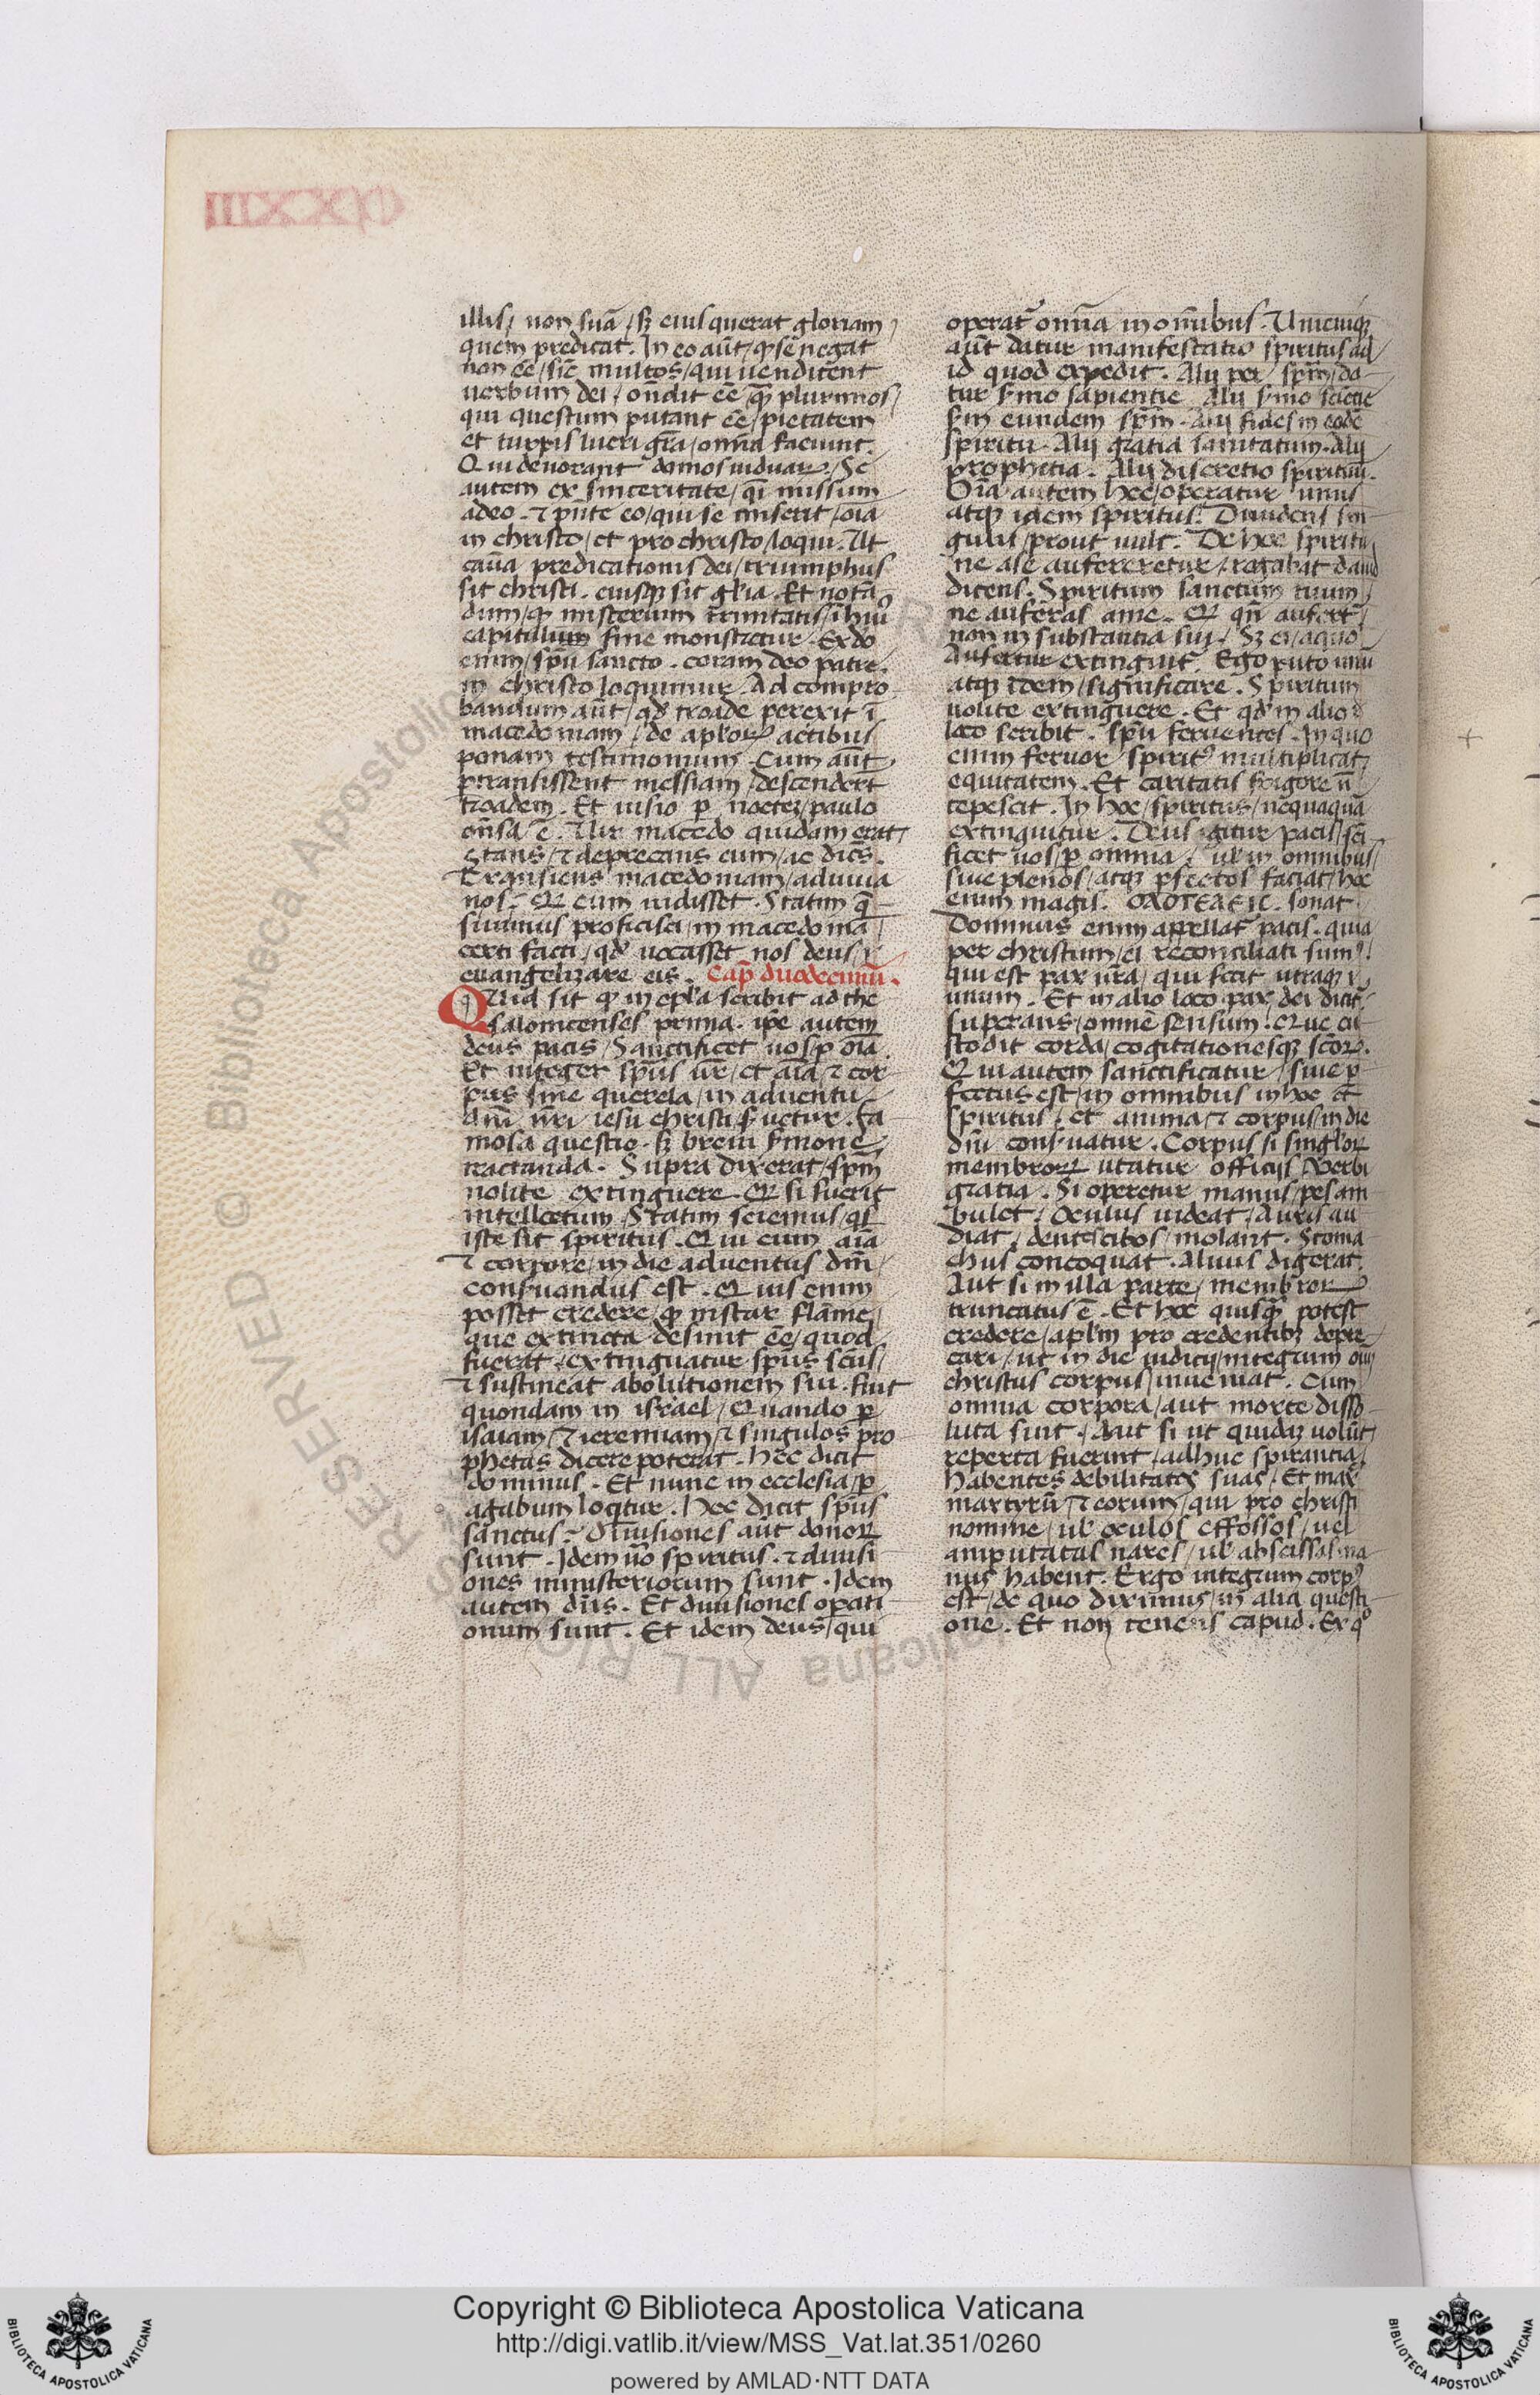 illis, non suā, sꝫ eius querat gloriam,
quem predicat. In eo aūt, ꝙ sē negat
non eē, sic̄ multos, qui uenditent
uerbum dei, on̄dit eē ꝗ̄ plurimos,
qui questum putant eē, pietatem
et turpis lucri gr̄a, omīa faciunt.
Qui deuorant domos uiduaꝝ. Se
autem ex sinceritate, qi missum
adeo. ⁊ p̄nte eo, qui se miserit, oīa
in christo, et pro christo, loqui. Ut
cauā predicationis dei, triumphus
sit christi. eiusqꝫ sit gl'ia. Et notā
dum, ꝙ misterium trinitatis, ī hui9
capitulum fine monstretur. Ex do
enim, sp̄u sancto. coram deo patre.
in christo loquimur. Ad compro
bandum aūt, qd' troade perexit ī
macedoniam, de apl'oꝝ actibus
ponam testimonium. Cum aūt.
ꝑtransissent messiam, descendert̄
troadem. Et uisio ꝑ noctez, paulo
on̄sa ē. Uir macedo quidam erat,
Stans, ⁊ deprecans eum, ac dicēs.
Transiens macedoniam, adiuua
nos. Qꝛ cum uidisset. Statim q̄
siuimus proficisci, in macedoniā,
certi facti, qd' uocasset nos deus,
euangelizare eis. Cap̄ duodecimū.
Quid sit ꝙ in epl'a scribit ad the
salonicenses prima. ip̄e autem
deus pacis, Sanctificet uos, ꝑ oīa.
Et integer sp̄us ur̄, et aīa ⁊ cor
pus sine querela, in aduentu
dn̄i nr̄i iesu christi ẜuetur. fa
mosa questio. sꝫ breui ẜmone,
tractanda. Supra dixerat, sp̄m
nolite extinguere. Qꝛ si fuerit
intellectum, Statim sciemus, qͥs
iste sit spiritus. Qui cum aīa
⁊ corpore, in die aduentus dn̄i,
conẜuandus est. Quis enim
posset credere, ꝙ instar flāme,
que extincta desinit eē, quod
fuerat, extinguatur sp̄us scūs,
⁊ sustineat abolitionem sui. fuit
quondam in israel, Quando ꝑ
isaiam, ⁊ ieremiam, ⁊ singulos pro
phetas dicere poterat. hec dicit
dominus. Et nunc in ecclesia, ꝑ
agabum loqͥtur. hec dicit sp̄us
sanctus. Diuisiones aūt donoꝝ
sunt. Idem uō spiritus. ⁊ diuisi
ones ministeriorum sunt. Idem
autem dn̄s. Et diuisiones oꝑati
onum sunt. Et idem deus, qui
operat᷑ omīa in omībus. Unicuiqꝫ
aūt datur manifestatio spiritus ad
id quod expedit. Alij per sp̄m, da
tur ẜmo sapientie. Alij ẜmo sciētie
ẜm eundem sp̄m. Alij fides in eodē
spiritu. Alij gratia sanitatum. Alij
prophetia. Alij discretio spirituū.
Oīa autem hec, operatur unus
atqꝫ idem spiritus. Diuidens sin
gulis, prout uult. De hoc spiritu
ne ase auferretur, rogabat dauid
dicens. Spiritum sanctum tuum,
ne auferas ame. Qꝛ qn̄ aufert᷑,
non in substantia sui, Sꝫ ei, aquo
Aufertur extinguit᷑. Ego puto unū
atqꝫ idem, significare. Spiritum
nolite extinguere. Et qd' in alio
loco scribit. sp̄u feruentes. In quo
enim feruor spirit9 multiplicat᷑,
equitatem. Et caritatis frigore n̄
tepescit. In hoc, spiritus, nequaquā
extinguitur. Deus igitur pacis, sc̄i
ficet uos, ꝑ omnia, ul' in omnibus,
siue plenos, atqꝫ ꝑfectos faciat, hoc
enim magis. sonat
Dominus enim appellat᷑ pacis. quia
per christum, ei reconciliati sum9.
qui est pax nr̄a, qui fecit utraqꝫ
unum. Et in alio loco. pax dei dicit᷑
superans, omnē sensum. Que cu
stodit corda, cogitationesqꝫ scōꝝ.
Qui autem sanctificatur, siue ꝑ
fectus est, in omnibus in hoc et
spiritus, et anima, ⁊ corpus, in die
dn̄i conẜuatur. Corpus si singl'oꝝ
membroꝝ utatur officijs uerbi
gratia. Si operetur manus, pes am
bulet, Oculus uideat, Auris au
diat, dentes cibos, molant. Stoma
chus concoquat. Aluus digerat.
Aut si in illa parte, membroꝝ
truncatus ē. Et hoc quisqꝫ potest
credere, apl'm pro credentibꝫ depre
cari, ut in die iudicij, integrum oīū
christus corpus, inueniat. Cum
omnia corpora, aut morte disso
luta sint. Aut si ut quidaz uolūt,
reperta fuerint, adhuc spirantia,
habentes debilitates suas, Et max̄
martyrū, ⁊ eorum, qui pro christi
nomine, ul' oculos effossos, uel
amputatas nares, ul' abscissas ma
nus habent. Ergo integrum corp9
est, de quo diximus, in alia questi
one. Et non tenens capud. Ex qͦ
Copyright © Biblioteca Apostolica Vaticana
http://digi.vatlib.it/view/MSS_Vat.lat.351/0260
powered by AMLAD·NTT DATA